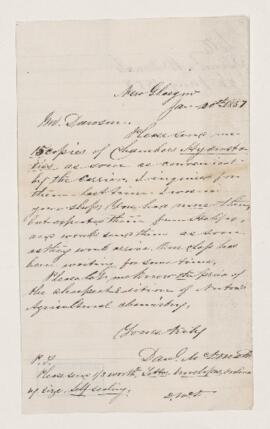 New Glasgow
Jan 20th 1857
Mr. Dawson
Please send me
5 copies of Chambers Hydrosta-
tics, as soon as convenient
by the carrier. I inquired for
them last time I was in
your shop. You had none then,
but expected them from Halifax,
and would send them as soon
as they would arrive. Our class has
been waiting for some time.
Please let me know the price
of the cheapest edition of
Agricultural chemistry.
Yours truly
P.S.
Please send worth letter envelopes,
size, self sealing.